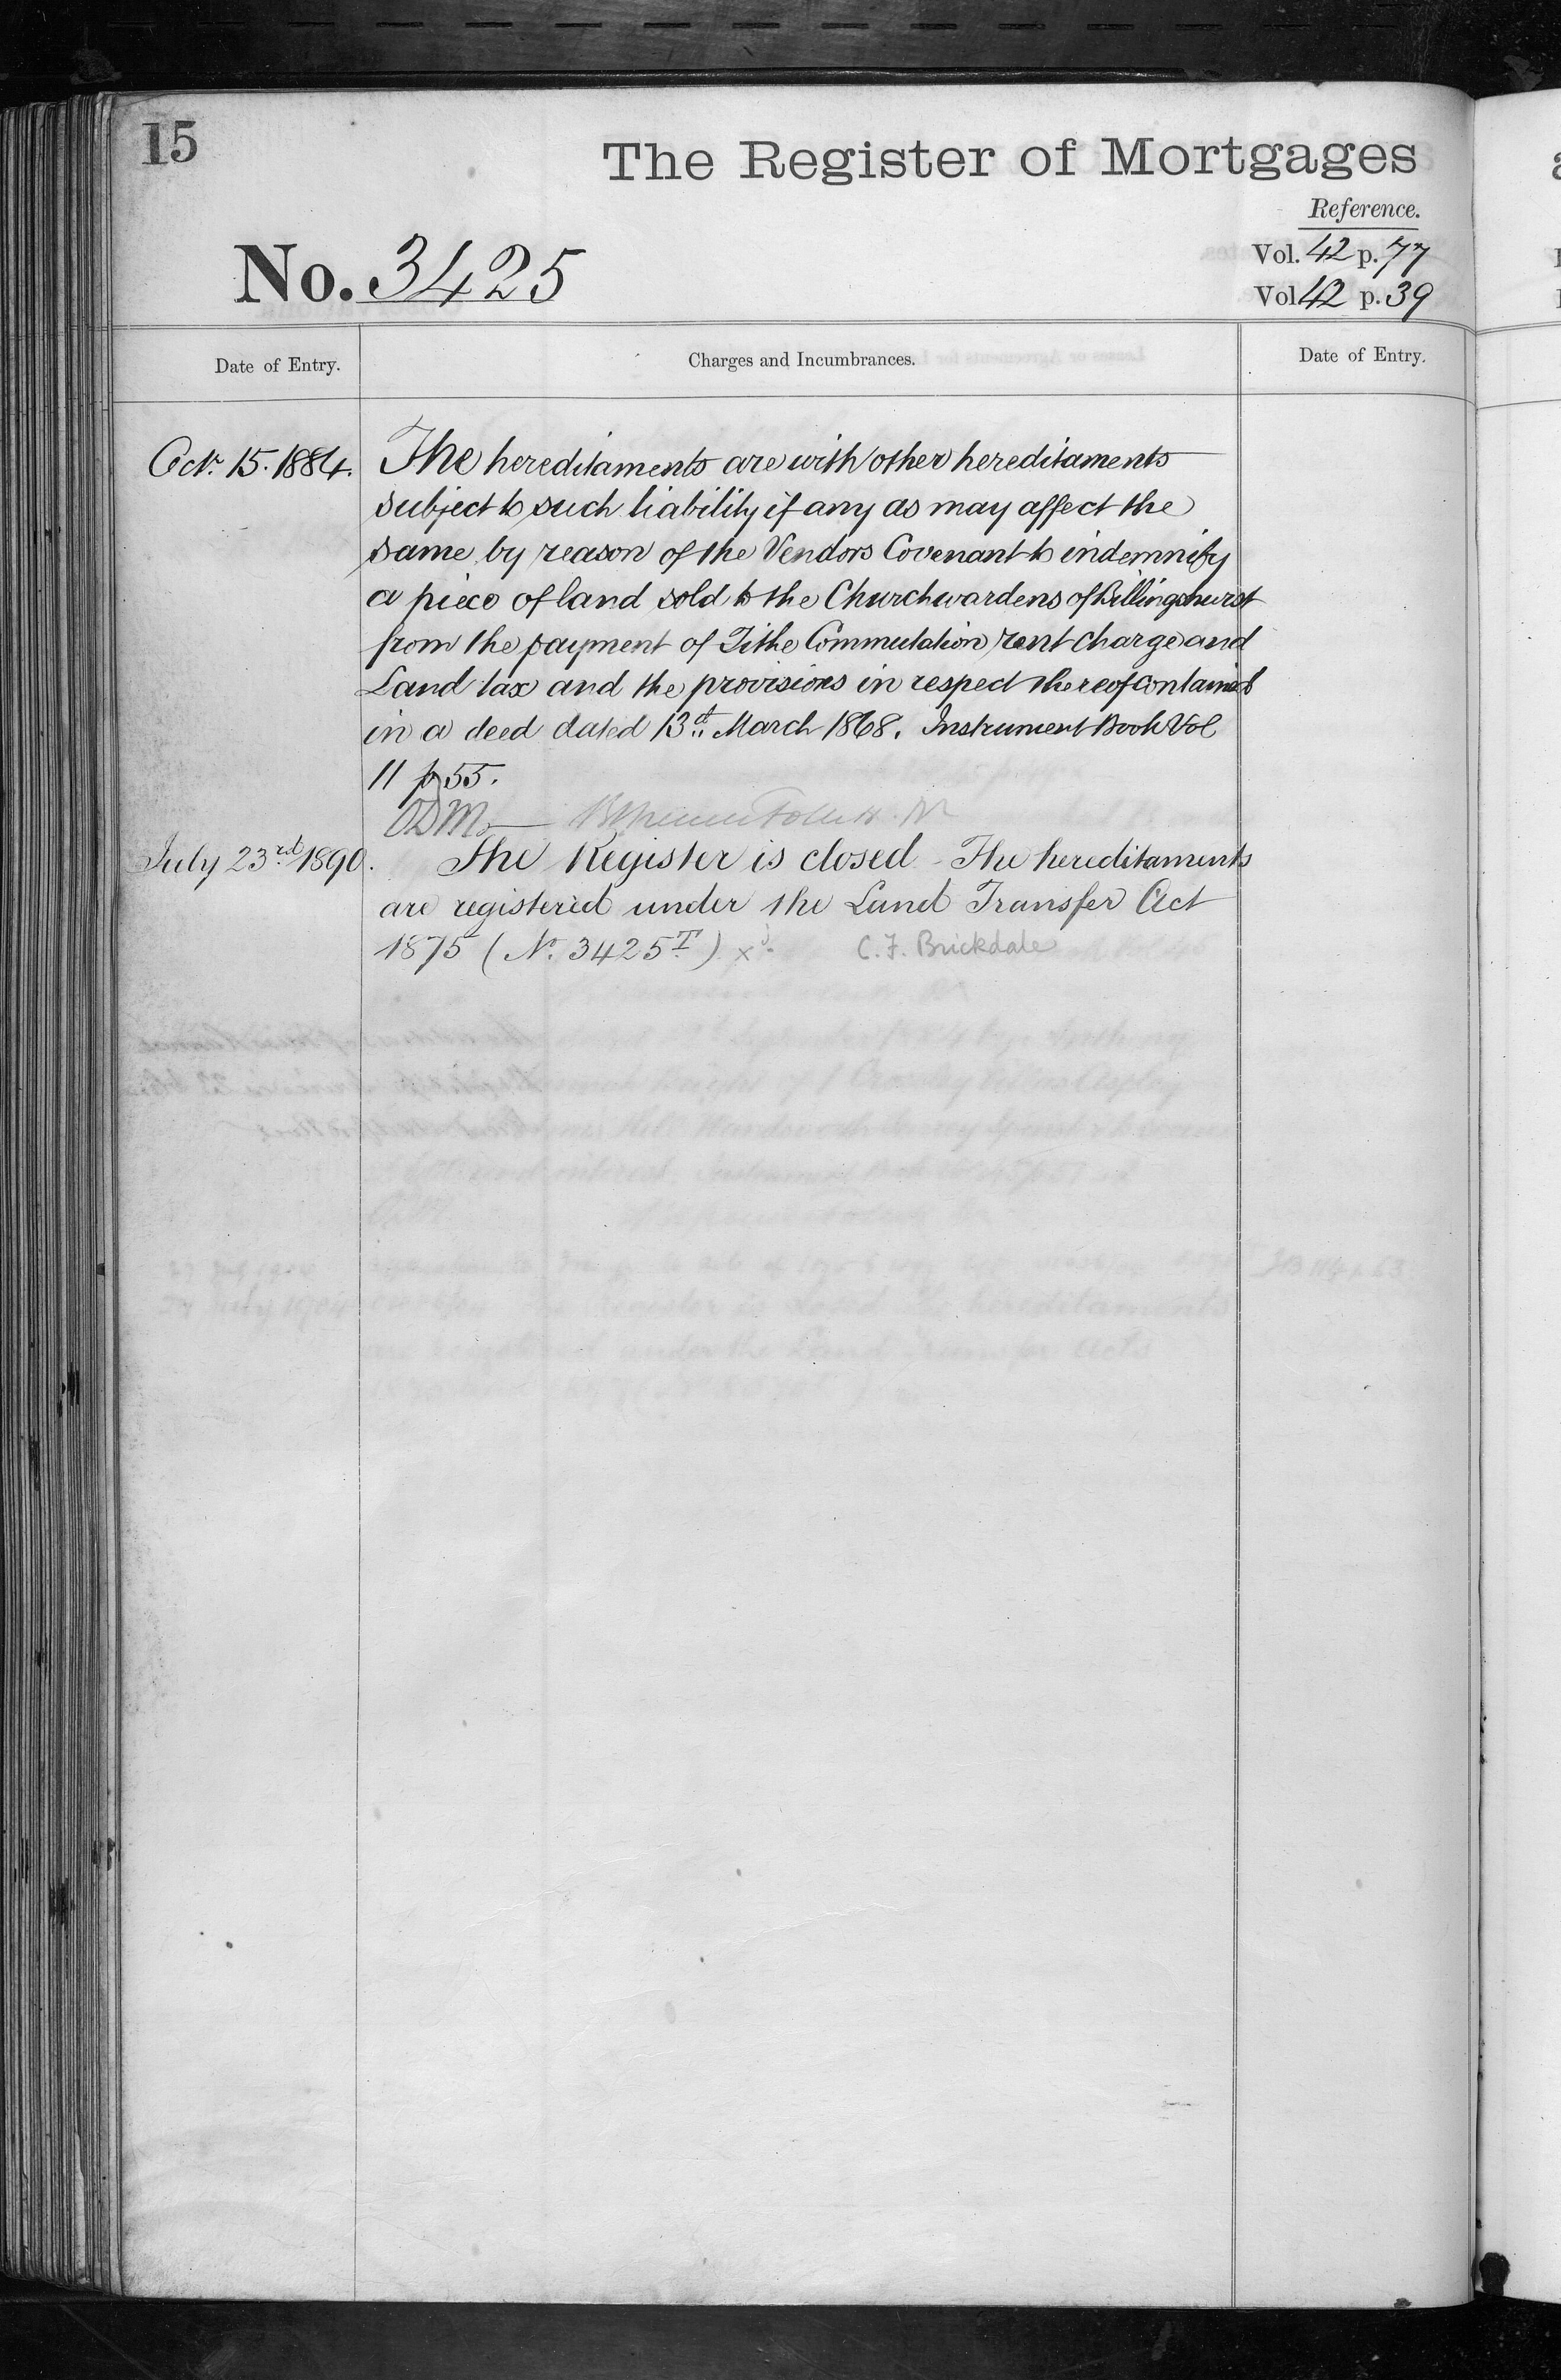 15
The Register of Mortgages
Reference.
No. 3425
Vol. 42 p. 77
Vol 42 p. 39
Date of Entry.
Charges and Incumbrances.
Date of Entry.
Oct.r 15. 1884.
The hereditaments are with other hereditaments
subject to such liability if any as may affect the
same by reason of the Vendors Covenant to indemnify
a piece of land sold to the Churchwardens of Billingshurst
from the payment of Tithe Commutation rent charge and
Land tax and the provisions in respect thereof contained
in a deed dated 13th March 1868. Instrument Book Vol
11 p 55.
ODM
July 23rd 1890.
The Register is closed - The hereditaments
are registered under the Land Transfer Act
1875 (No. 3425T) x C. F. Brickdale